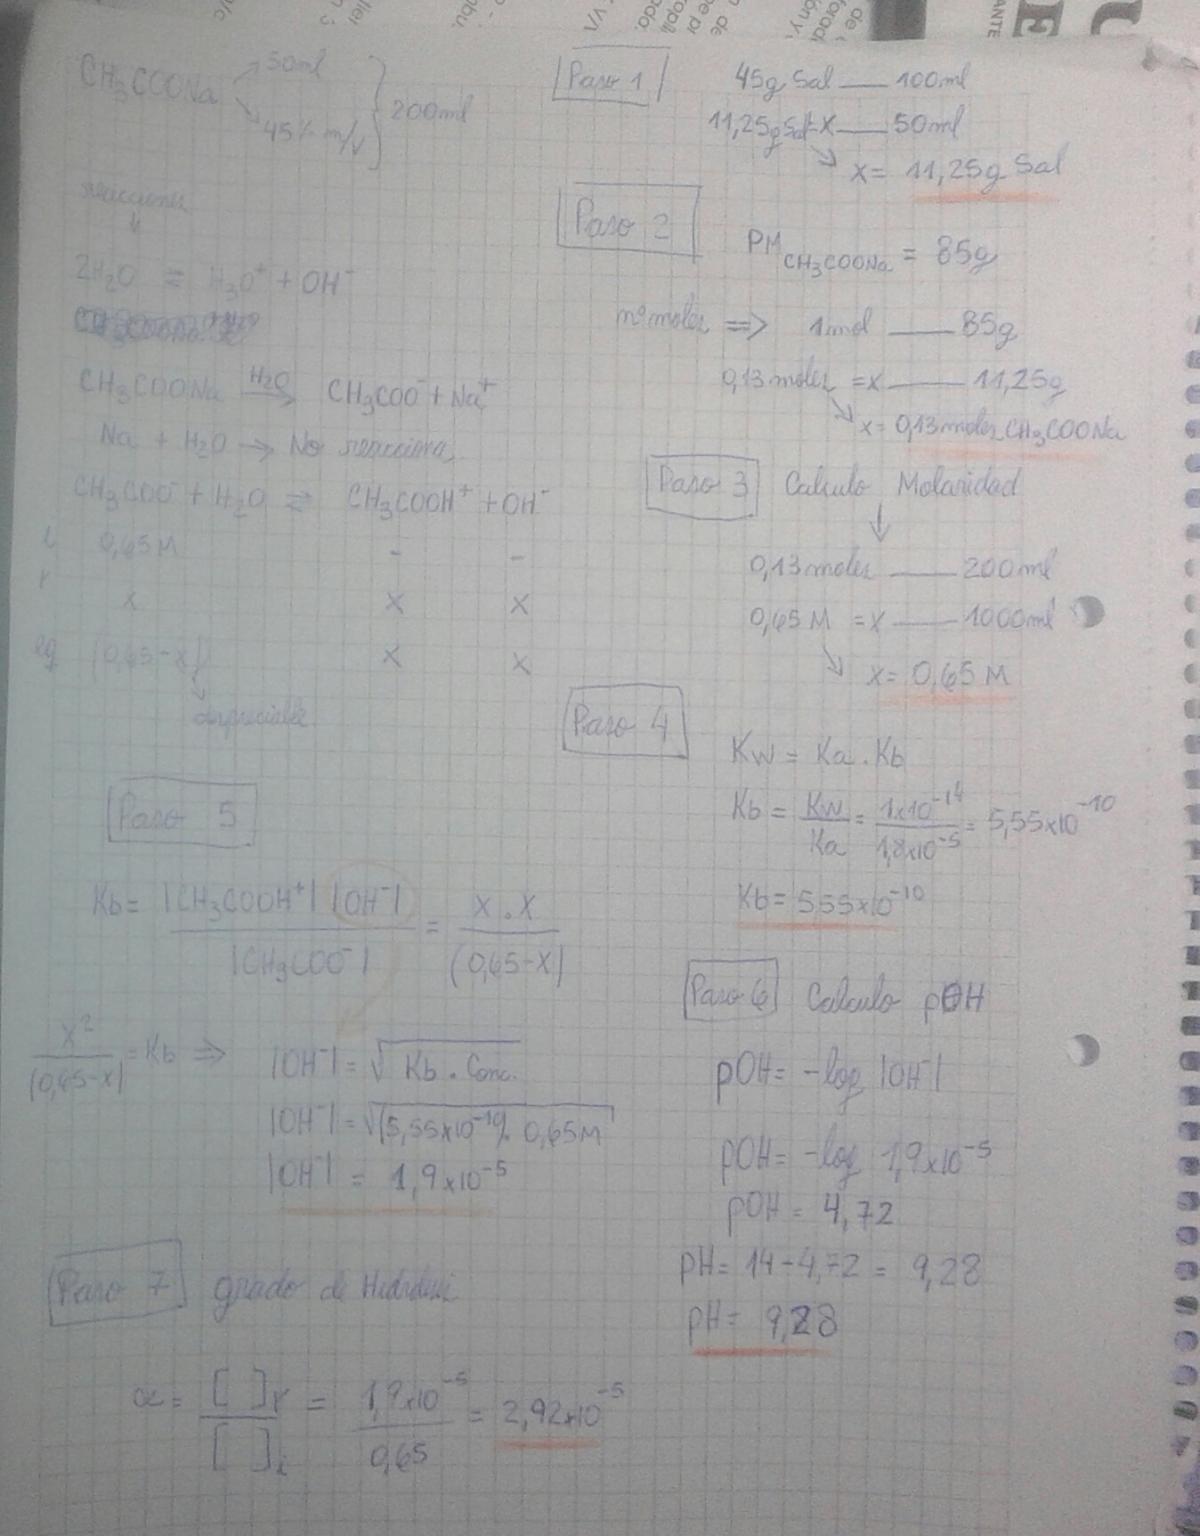 CH₃COONa 50ml
45% m/v
200ml
reacciones
2H₂O ⇌ H₃O⁺ + OH⁻
CH₃COONa H₂O → CH₃COO⁻ + Na⁺
Na + H₂O → No reacciona
CH₃COO⁻ + H₂O ⇌ CH₃COOH⁺ + OH⁻
i 0,65M - -
r x x x
eq (0,65-x) x x
despreciable
Paso 1
45g Sal — 100ml
11,25g Sal = x — 50ml
x = 11,25g Sal
Paso 2
PM CH₃COONa = 85g
nº moles ⇒ 1mol — 85g
0,13 moles = x — 11,25g
x = 0,13 moles CH₃COONa
Paso 3 Calculo Molaridad
0,13 moles — 200ml
0,65 M = x — 1000ml
x = 0,65 M
Paso 4
Kw = Ka . Kb
Kb = Kw / Ka = 1x10⁻¹⁴ / 1,8x10⁻⁵ = 5,55x10⁻¹⁰
Kb = 5,55x10⁻¹⁰
Paso 5
Kb = |CH₃COOH⁺| |OH⁻| / |CH₃COO⁻| = x . x / (0,65-x)
x² / (0,65-x) = Kb ⇒ |OH⁻| = √Kb . Conc.
|OH⁻| = √(5,55x10⁻¹⁰). 0,65M
|OH⁻| = 1,9x10⁻⁵
Paso 6 Calculo pOH
pOH = -log |OH⁻|
pOH = -log 1,9x10⁻⁵
pOH = 4,72
pH = 14 - 4,72 = 9,28
pH = 9,28
Paso 7 grado de
α = [ ]r / [ ]i = 1,9x10⁻⁵ / 0,65 = 2,92x10⁻⁵